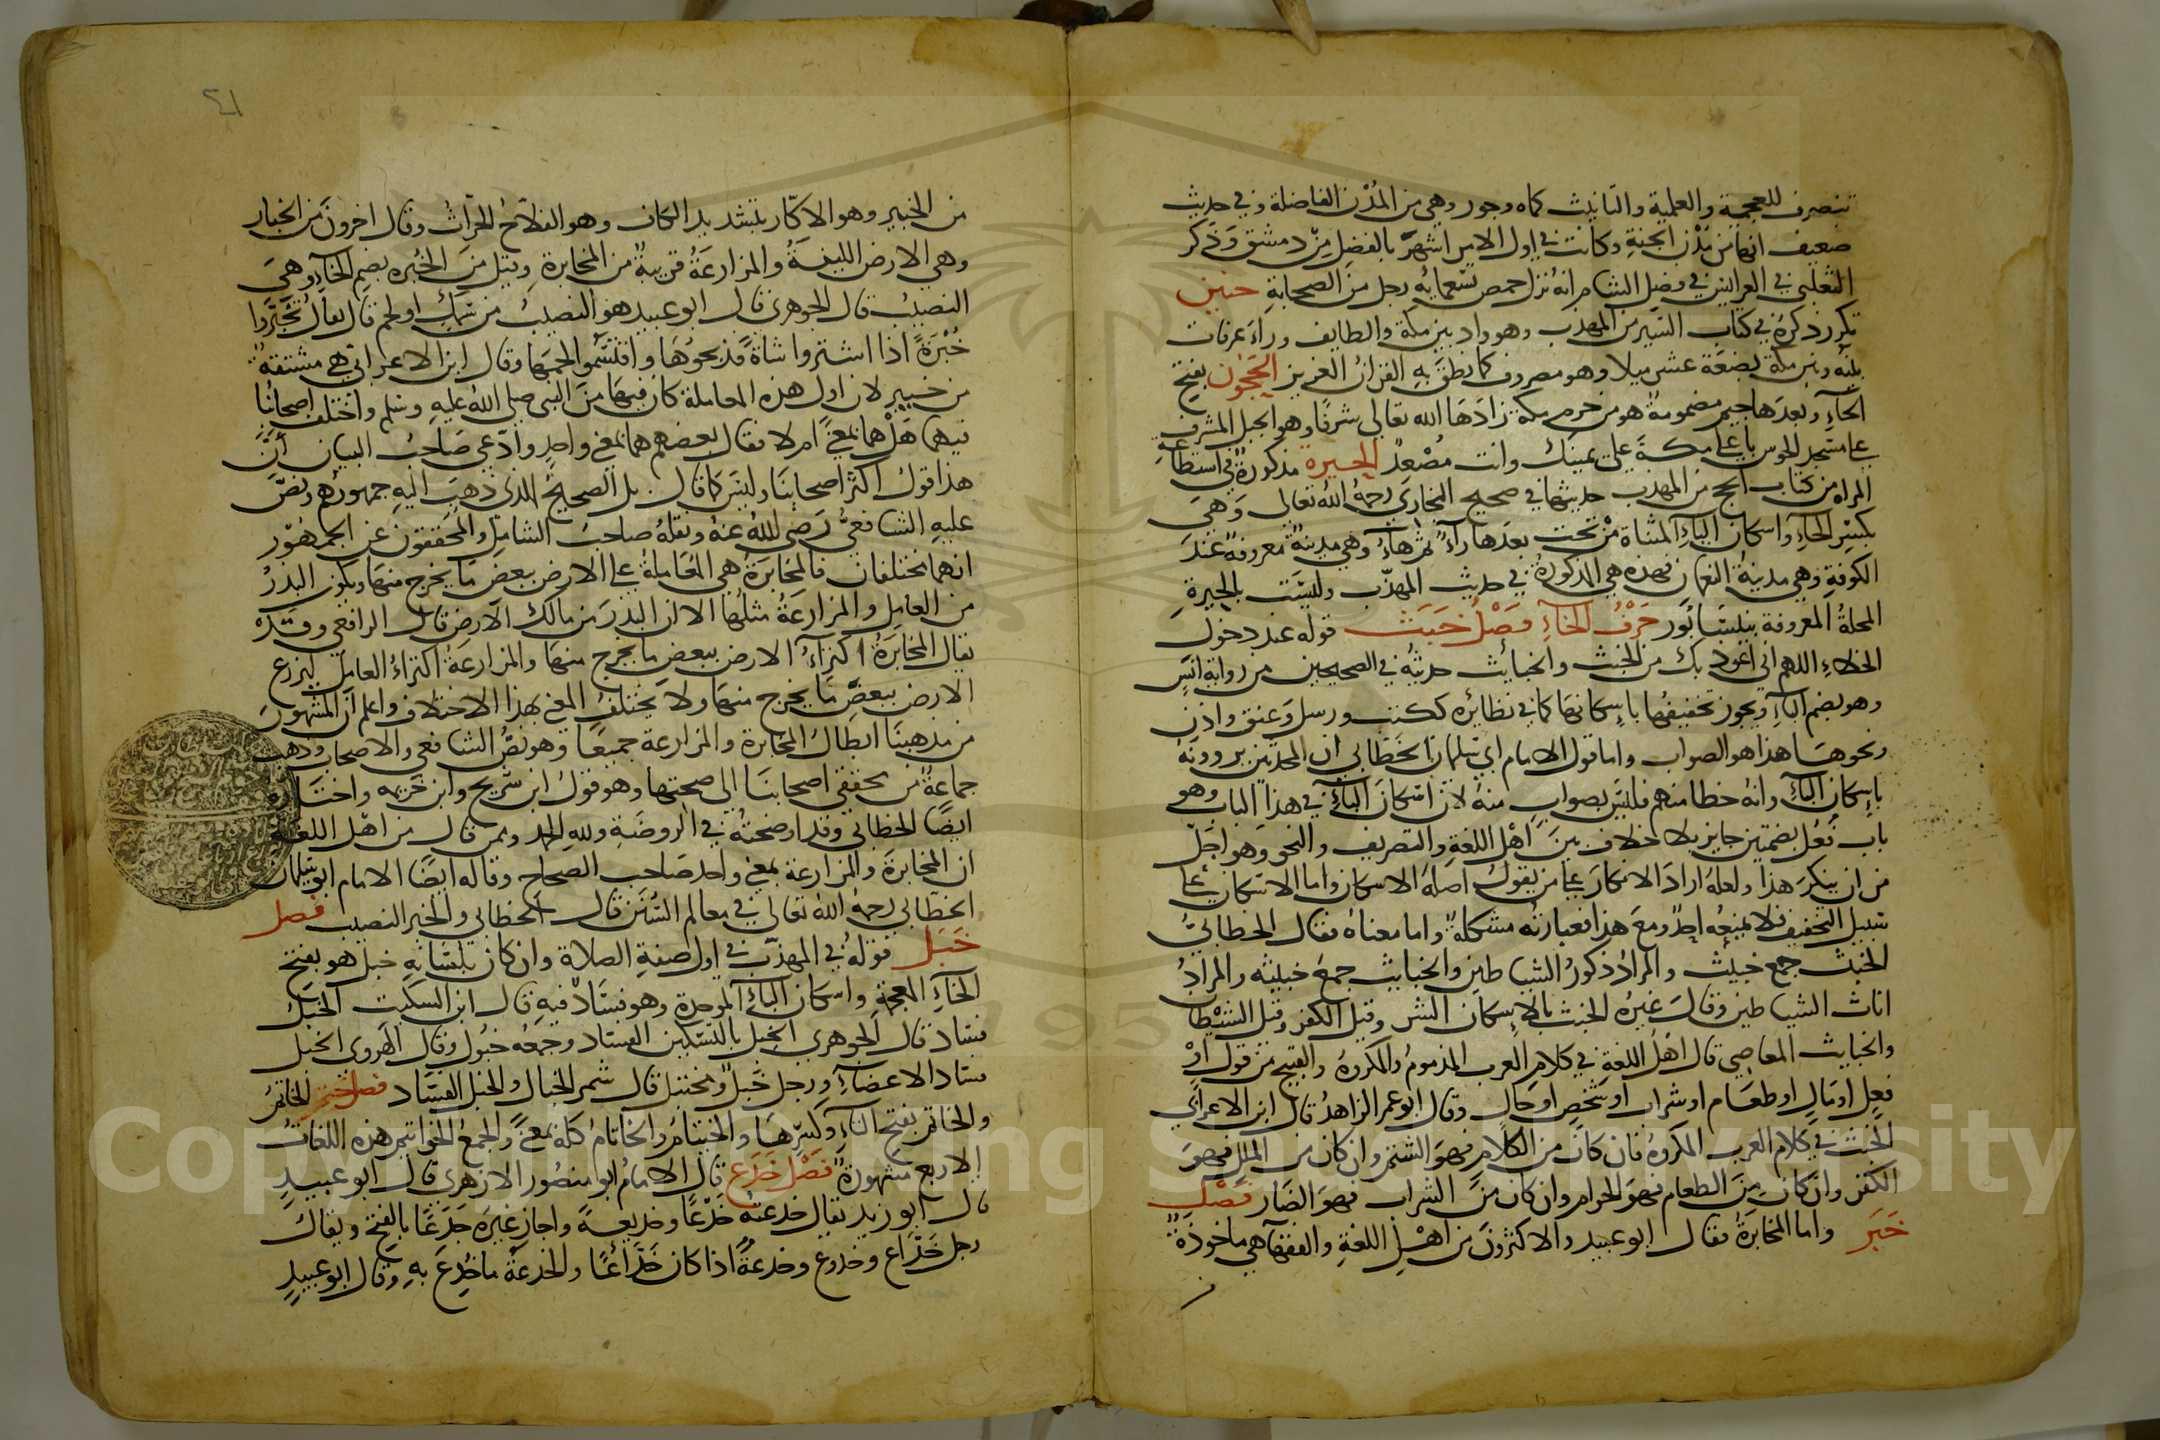 تنصرف للعجمية والعلمية والتانيث كماه وجور وهي من المدن الفاضلة وفي حديث
ضعيف انها من مدن الجنة وكانت في اول الامر اشهر بالفضل من دمشق وذكر
الثعلبي في العرايس في فضل الشام انه نزل حمص تسعماية رجل من الصحابة حنين
تكرر ذكره في كتاب السير من المهذب وهو واد بين مكة والطايف وراء عرفات
بينه وبين مكة بضعة عشر ميلا وهو مصروف كما نطق به القران العزيز الحجون بفتح
الحاء وبعدها جيم مضمومة هو من حرم مكة زادها الله تعالى شرفا وهو الجبل المشرف
على مسجد الحرس باعلى مكة على يمينك وانت مصعد الحيرة مذكورة في استطاعة
المراه من كتاب الحج من المهذب حديثها في صحيح البخاري رحمه الله تعالى وهي
بكسر الحاء واسكان الياء المثناة من تحت بعدها راء ثم هاء وهي مدينة معروفة عند
الكوفة وهي مدينة النعمان فهذه هي المذكورة في حديث المهذب وليست بالحيرة
المحلة المعروفة بنيسابور حرف الخاء فصل خبث قوله عند دخول
الخلاء اللهم اني اعوذ بك من الخبث والخبائث حديثه في الصحيحين من رواية انس
وهو بضم الباء ويجوز تخفيفها باسكانها كما في نظائره ككتب ورسل وعنق واذن
ونحوها هذا هو الصواب واما قول الامام ابي سليمان الخطابي ان المحدثين يروونه
باسكان الباء وانه خطا منهم فليس بصواب منه لان اسكان الباء في هذا الباب وهو
باب فعل بضمتين جايز بلا خلاف بين اهل اللغة والتصريف والنحو وهو اجل
من ان ينكر هذا ولعله اراد الانكار على من يقول اصله الاسكان واما الاسكان على
سبيل التخفيف فلا يمنعه احد ومع هذا فعبارته مشكلة واما معناه فقال الخطابي
الخبث جمع خبيث والمراد ذكور الشياطين والخبايث جمع خبيثه والمراد
اناث الشياطين وقال غيره الخبث بالاسكان الشر وقيل الكفر وقيل الشيطان
والخبايث المعاصي قال اهل اللغة في كلام العرب المذموم والمكروه والقبيح من قول او
فعل او مال او طعام او شراب او شخص او حال وقال ابو عمر الزاهد قال ابن الاعرابي
الخبث في كلام العرب المكروه فان كان من الكلام فهو الشتم وان كان من الملل فهو
الكفر وان كان من الطعام فهو الحرام وان كان من الشراب فهو الضار فصل
خبر واما المخابرة فقال ابو عبيد والاكثرون من اهل اللغة والفقهاء هي ماخوذة
من
٢١
من الخبير وهو الاكار بتشديد الكاف وهو الفلاح الحراث وقال اخرون من الخبار
وهي الارض اللينة والمزارعة قريبة من المخابرة وقيل من الخبره بضم الخاء وهي
النصيب قال الجوهري قال ابو عبيد هو النصيب من سمك او لحم قال يقال تخبروا
خبرة اذا اشتروا شاة فذبحوها واقتسموا لحمها وقال ابن الاعرابي هي مشتقة
من خيبر لان اول هذه المعاملة كان فيها من النبي صلى الله عليه وسلم واختلف اصحابنا
فيهما هل هما بمعنى ام لا فقال بعضهم هما بمعنى واحد وادعى صاحب البيان ان
هذا قول اكثر اصحابنا وليس كما قال بل الصحيح الذي ذهب اليه جمهورهم ونص
عليه الشافعي رضي الله عنه ونقله صاحب الشامل والمحققون عن الجمهور
انهما مختلفان فالمخابرة هي المعاملة على الارض ببعض ما يخرج منها ويكون البذر
من العامل والمزارعة مثلها الا ان البذر من مالك الارض قال الرافعي وقد
يقال المخابرة اكتراء الارض ببعض ما يخرج منها والمزارعة اكتراء العامل ليزرع
الارض ببعض ما يخرج منها ولا يختلف المعنى بهذا الاختلاف واعلم ان المشهور
من مذهبنا ابطال المخابرة والمزارعة جميعا وهو نص الشافعي والاصحاب وذهب
جماعة من محققي اصحابنا الى صحتها وهو قول ابن سريج وابن خزيمه واختاره
ايضا الخطابي وقد اوضحته في الروضة ولله الحمد وممن قال من اهل اللغة
ان المخابرة والمزارعة بمعنى واحد صاحب الصحاح وقاله ايضا الامام ابو سليمان
الخطابي رحمه الله تعالى في معالم السنن قال الخطابي والخبر النصيب فصل
خبل قوله في المهذب في اول صفة الصلاة وان كان بلسانه خبل هو بفتح
الخاء المعجمة واسكان الباء الموحدة وهو فساد فيه قال ابن السكيت الخبل
فساد قال الجوهري الخبل بالتسكين الفساد وجمعه خبول وقال الهروي الخبل
فساد الاعضاء ورجل خبل ومختبل قال شمر الخبال والخبل الفساد فصل ختم الخاتم
والخاتم بفتح التاء وكسرها والخيتام والخاتام كله بمعنى والجمع الخواتيم هذه اللغات
الاربع مشهورة فصل خدع قال الامام ابو منصور الازهري قال ابو عبيد
قال ابو زيد يقال خدعته خدعا وخديعة واجاز غيره خدعا بالفتح ويقال
رجل خداع وخدوع وخدعة اذا كان خداعا والخدعة ما خدع به وقال ابو عبيد